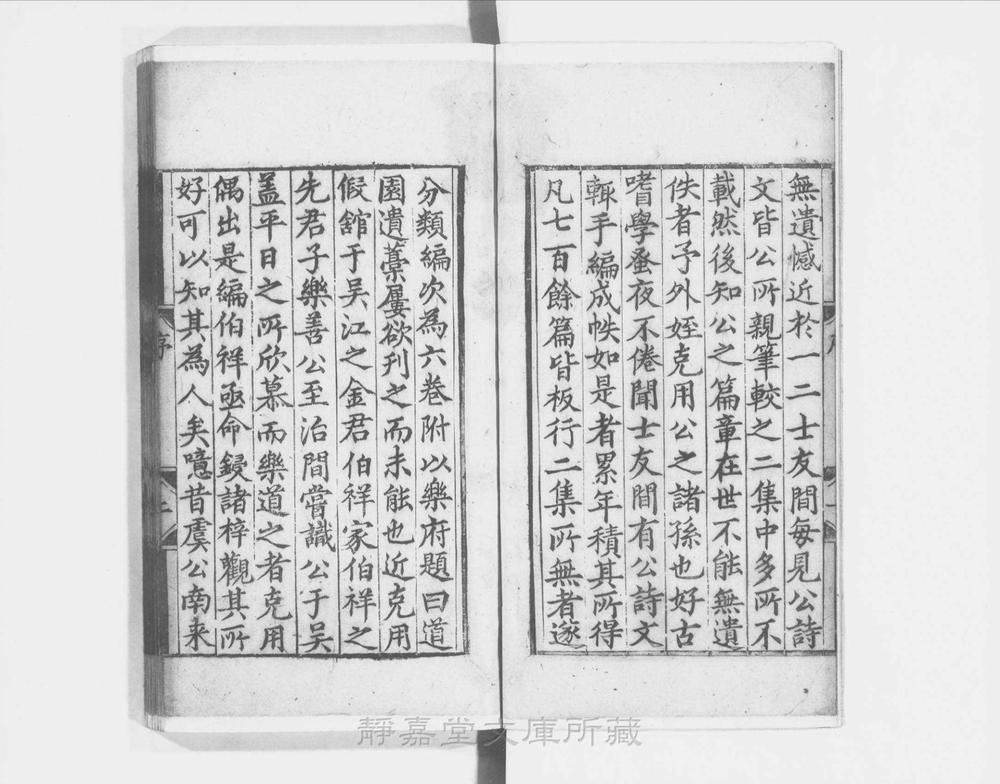 無遺憾近於一二士友間每見公詩
文皆公所親筆較之二集中多所不
載然後知公之篇章在世不能無遺
佚者予外姪克用公之諸孫也好古
嗜學蚤夜不倦聞士友間有公詩文
輒手編成帙如是者累年積其所得
凡七百餘篇皆板行二集所無者遂
分類編次為六卷附以樂府題曰道
園遺藁屢欲刋之而未能也近克用
假舘于吴江之金君伯祥家伯祥之
先君子樂善公至治間嘗識公于吴
盖平日之所欣慕而樂道之者克用
偶出是編伯祥亟命鋟諸梓觀其所
好可以知其為人矣噫昔虞公南来
序
靜嘉堂文庫所藏